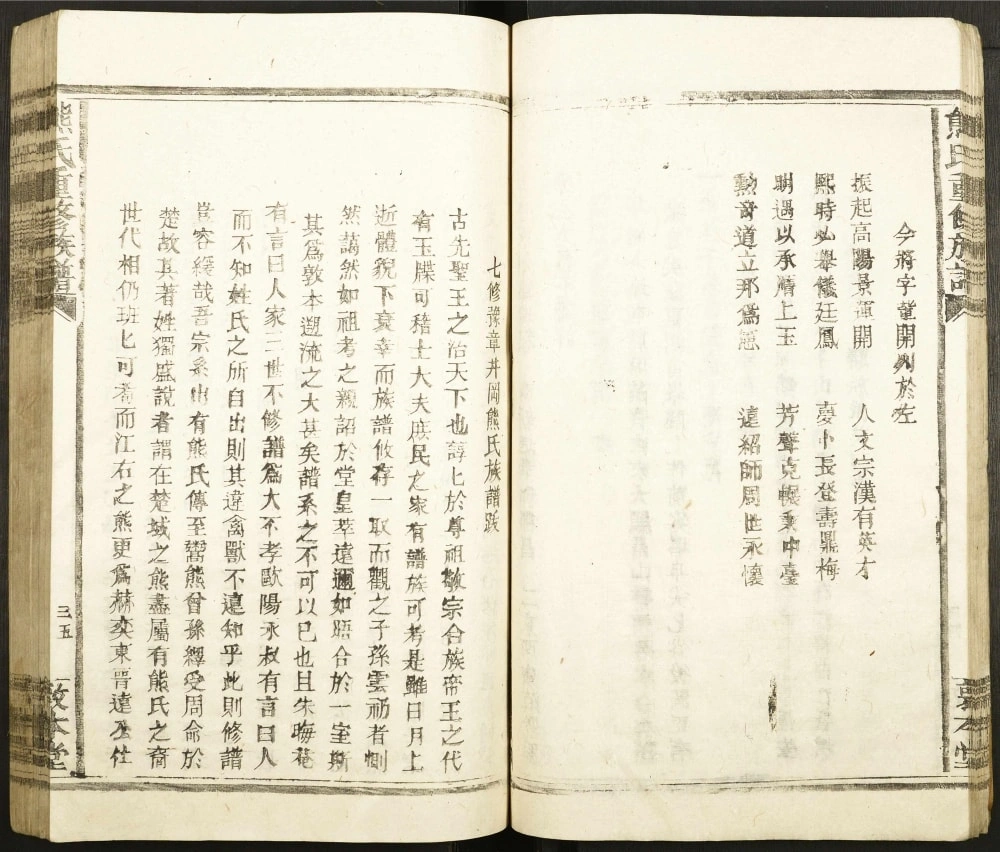 熊氏重修族譜
今將字輩開列於左
振起高陽景運開　人文宗漢有英才
熙時必舉儀廷鳳　慶卜長登壽鼎梅
明遇以承膺上玉　芳聲克振秉中臺
勲音道立那為憲　遠紹師周世永懷
敦本堂
七修豫章井岡熊氏族譜跋
古先聖王之治天下也諄匕於尊祖敬宗合族帝王之代
有玉牒可稽士大夫庶民之家有譜族可考是雖日月上
逝體貌下衰幸而族譜攸存一取而觀之子孫雲礽者惻
然藹然如祖考之親詔於堂皇萃遠邇如晤合於一室斯
其為敦本遡流之大甚矣譜系之不可以已也且朱晦菴
有言曰人家三世不修譜為大不孝歐陽永叔有言曰人
而不知姓氏之所自出則其違禽獸不遠知乎此則修譜
豈容緩哉吾宗系出有熊氏傳至鬻熊曾孫繹受周命於
楚故其著姓獨盛說者謂在楚域之熊盡屬有熊氏之裔
世代相仍班匕可考而江右之熊更為赫奕東晉遠公仕
熊氏重修族譜
三五
敦本堂